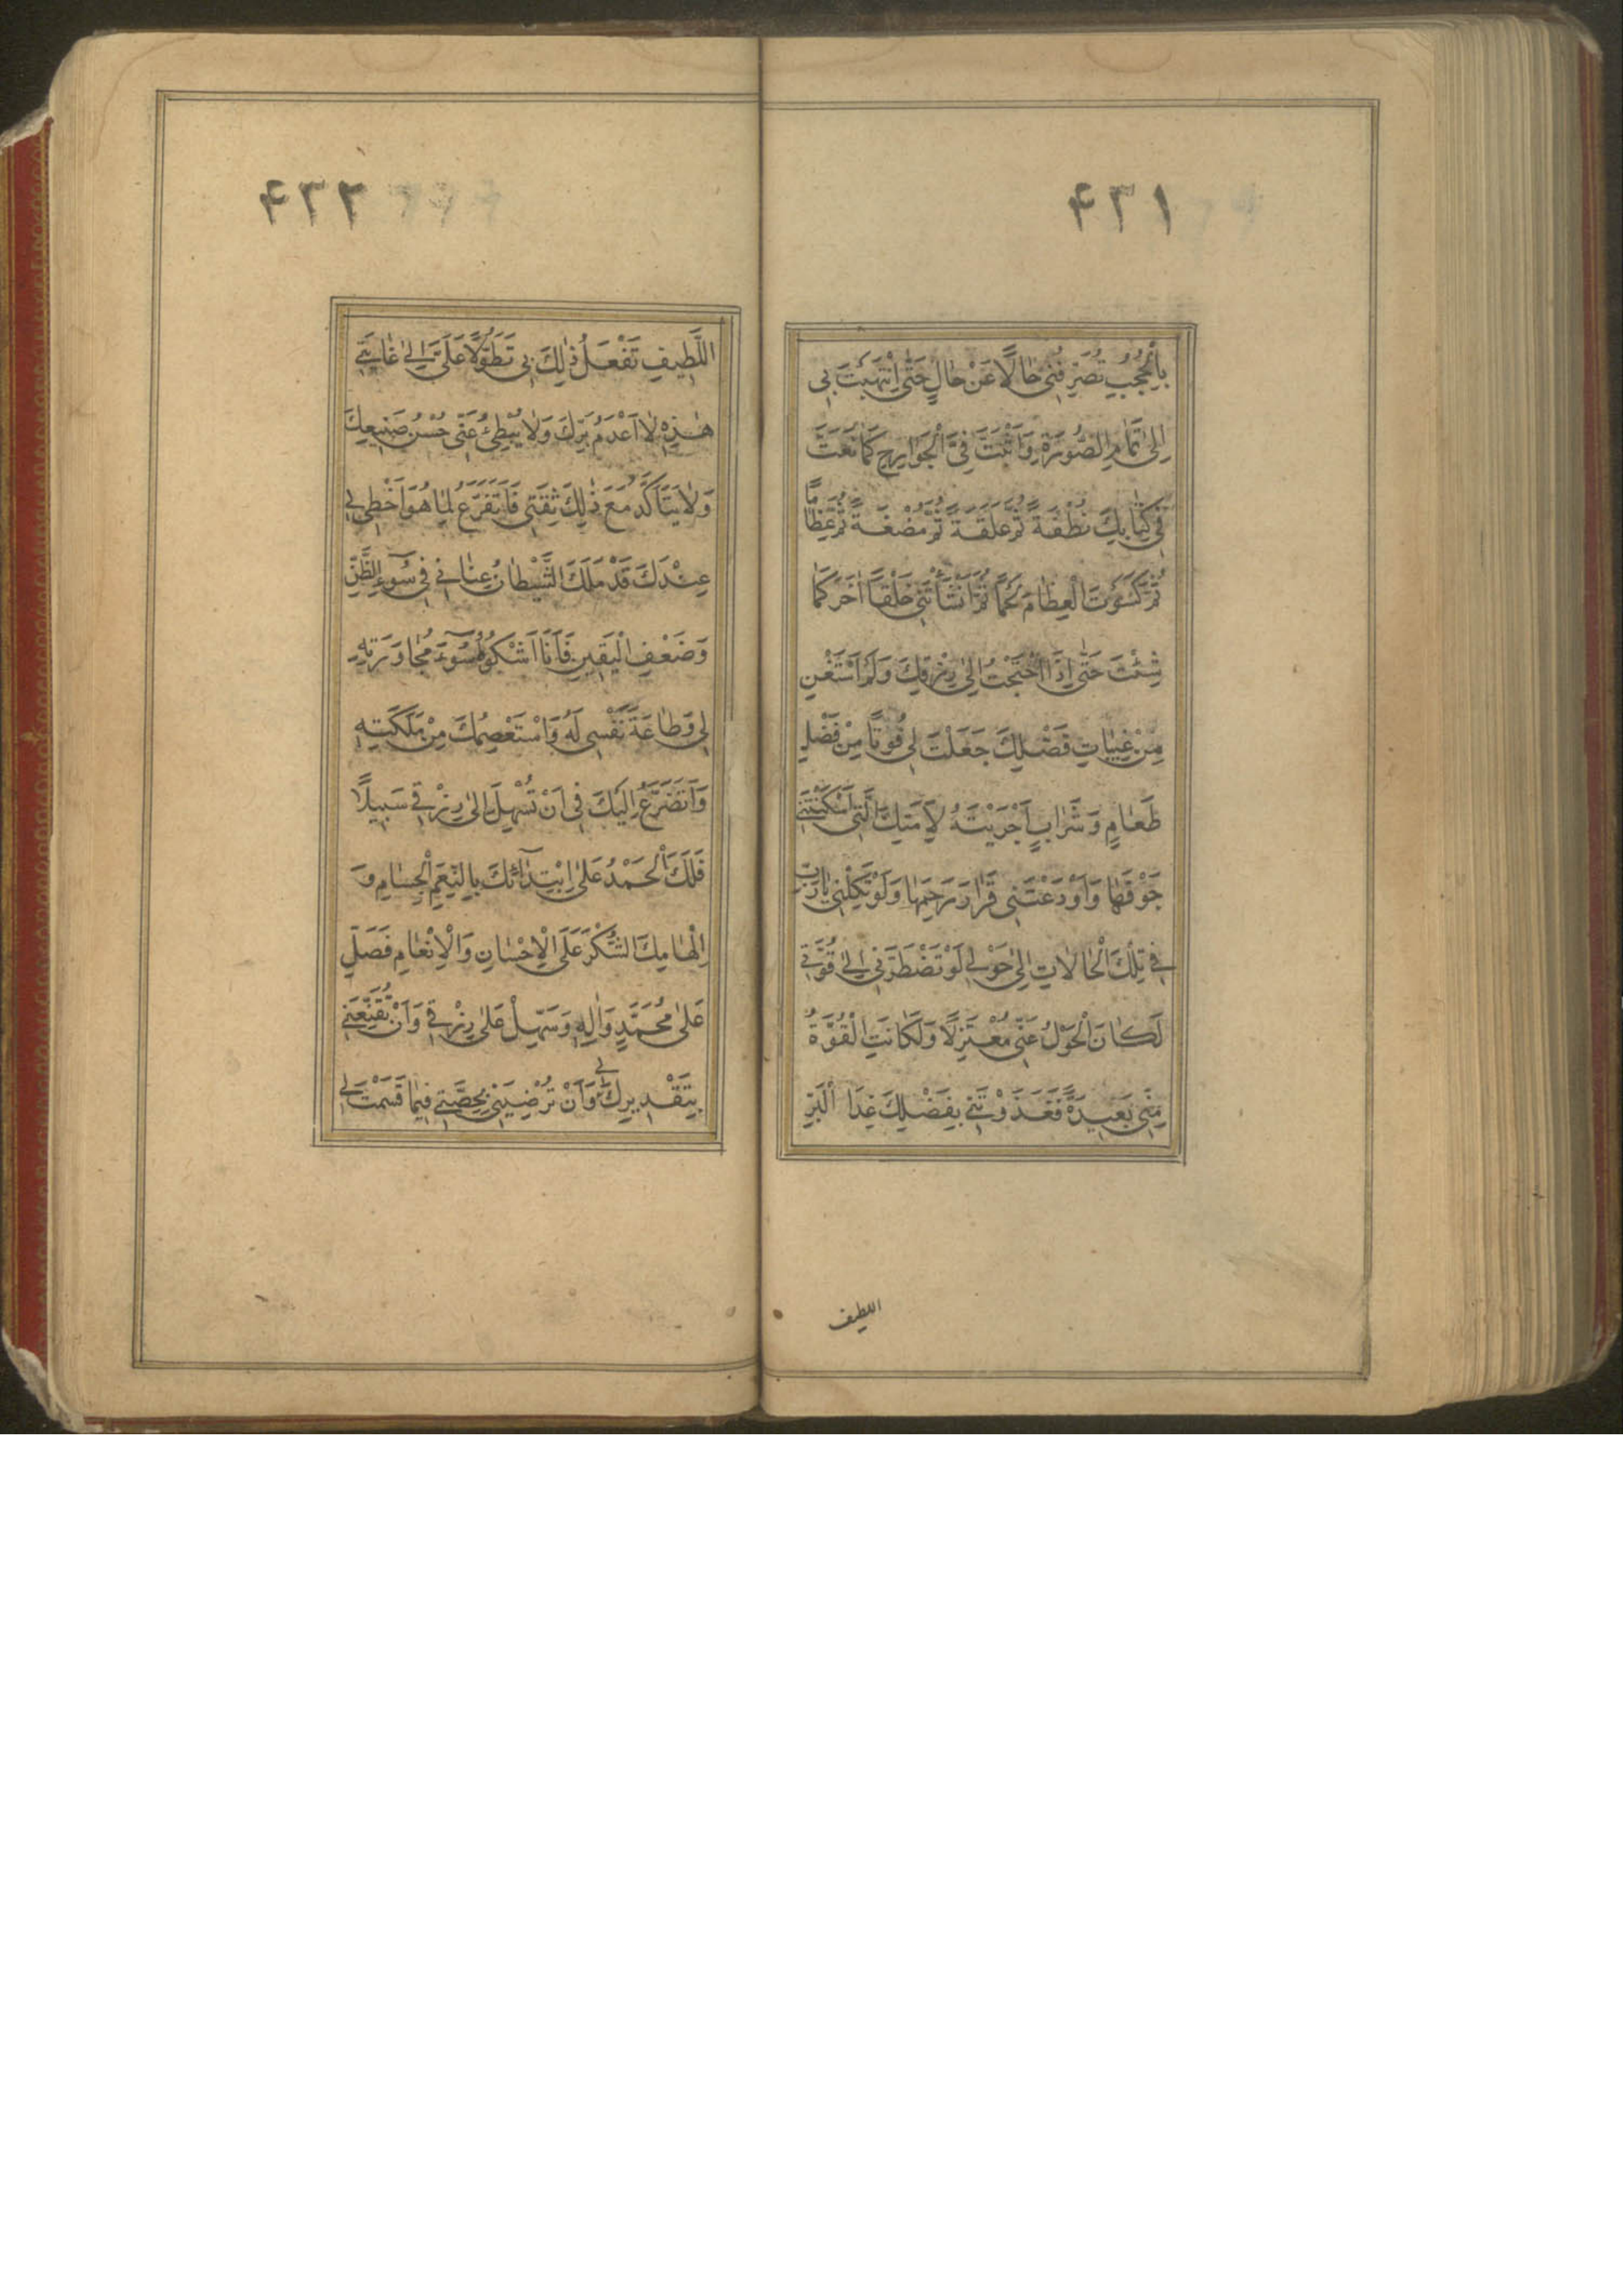 ۴۳۱
بِالْحُجُبِ تُصَرِّفُنِی حَالًا عَنْ حَالٍ حَتّٰی انْتَهَیْتَ بِی
اِلٰی تَمَامِ الصُّورَةِ وَ اَثْبَتَّ فِیَّ الْجَوَارِحَ کَمَا نَعَتَّ
فِی کِتَابِكَ نُطْفَةً ثُمَّ عَلَقَةً ثُمَّ مُضْغَةً ثُمَّ عِظَامًا
ثُمَّ کَسَوْتَ الْعِظَامَ لَحْمًا ثُمَّ اَنْشَأْتَنِی خَلْقًا اٰخَرَ کَمَا
شِئْتَ حَتّٰی اِذَا احْتَجْتُ اِلٰی رِزْقِكَ وَلَمْ اَسْتَغْنِ
مِنْ غِیَاثِ فَضْلِكَ جَعَلْتَ لِی قُوتًا مِنْ فَضْلِ
طَعَامٍ وَ شَرَابٍ اَجْرَیْتَهُ لِاَمَتِكَ الَّتِی اَسْکَنْتَنِی
جَوْفَهَا وَ اَوْدَعْتَنِی قَرَارَ رَحِمِهَا وَ لَوْ تَکِلْنِی یَا رَبِّ
فِی تِلْكَ الْحَالَاتِ اِلٰی حَوْلِی اَوْ تَضْطَرُّنِی اِلٰی قُوَّتِی
لَکَانَ الْحَوْلُ عَنِّی مُعْتَزِلًا وَ لَکَانَتِ الْقُوَّةُ
مِنِّی بَعِیدَةً فَغَذَوْتَنِی بِفَضْلِكَ غِذَا الْبَرِّ
اللطیف
۴۳۲
اللَّطِیفِ تَفْعَلُ ذٰلِكَ بِی تَطَوُّلًا عَلَیَّ اِلٰی غَایَتِی
هٰذِهِ لَا اَعْدَمُ بِرَّكَ وَلَا یُبْطِئُ عَنِّی حُسْنُ صَنِیعِكَ
وَلَا یَتَأَکَّدُ مَعَ ذٰلِكَ ثِقَتِی فَاَتَفَرَّغَ لِمَا هُوَ اَحْظٰی لِی
عِنْدَكَ قَدْ مَلَكَ الشَّیْطَانُ عِنَانِی فِی سُوٓءِ الظَّنِّ
وَ ضَعْفِ الْیَقِینِ فَاَنَا اَشْکُو سُوٓءَ مُجَاوَرَتِهِ
لِی وَ طَاعَةَ نَفْسِی لَهُ وَ اَسْتَعْصِمُكَ مِنْ مَلَکَتِهِ
وَ اَتَضَرَّعُ اِلَیْكَ فِی اَنْ تُسَهِّلَ اِلٰی رِزْقِی سَبِیلًا
فَلَكَ الْحَمْدُ عَلٰی ابْتِدَآئِكَ بِالنِّعَمِ الْجِسَامِ وَ
اِلْهَامِكَ الشُّکْرَ عَلَی الْاِحْسَانِ وَ الْاِنْعَامِ فَصَلِّ
عَلٰی مُحَمَّدٍ وَ اٰلِهِ وَ سَهِّلْ عَلَیَّ رِزْقِی وَ اَنْ تُقَنِّعَنِی
بِتَقْدِیرِكَ لِی وَ اَنْ تُرْضِیَنِی بِحِصَّتِی فِیمَا قَسَمْتَ لِی